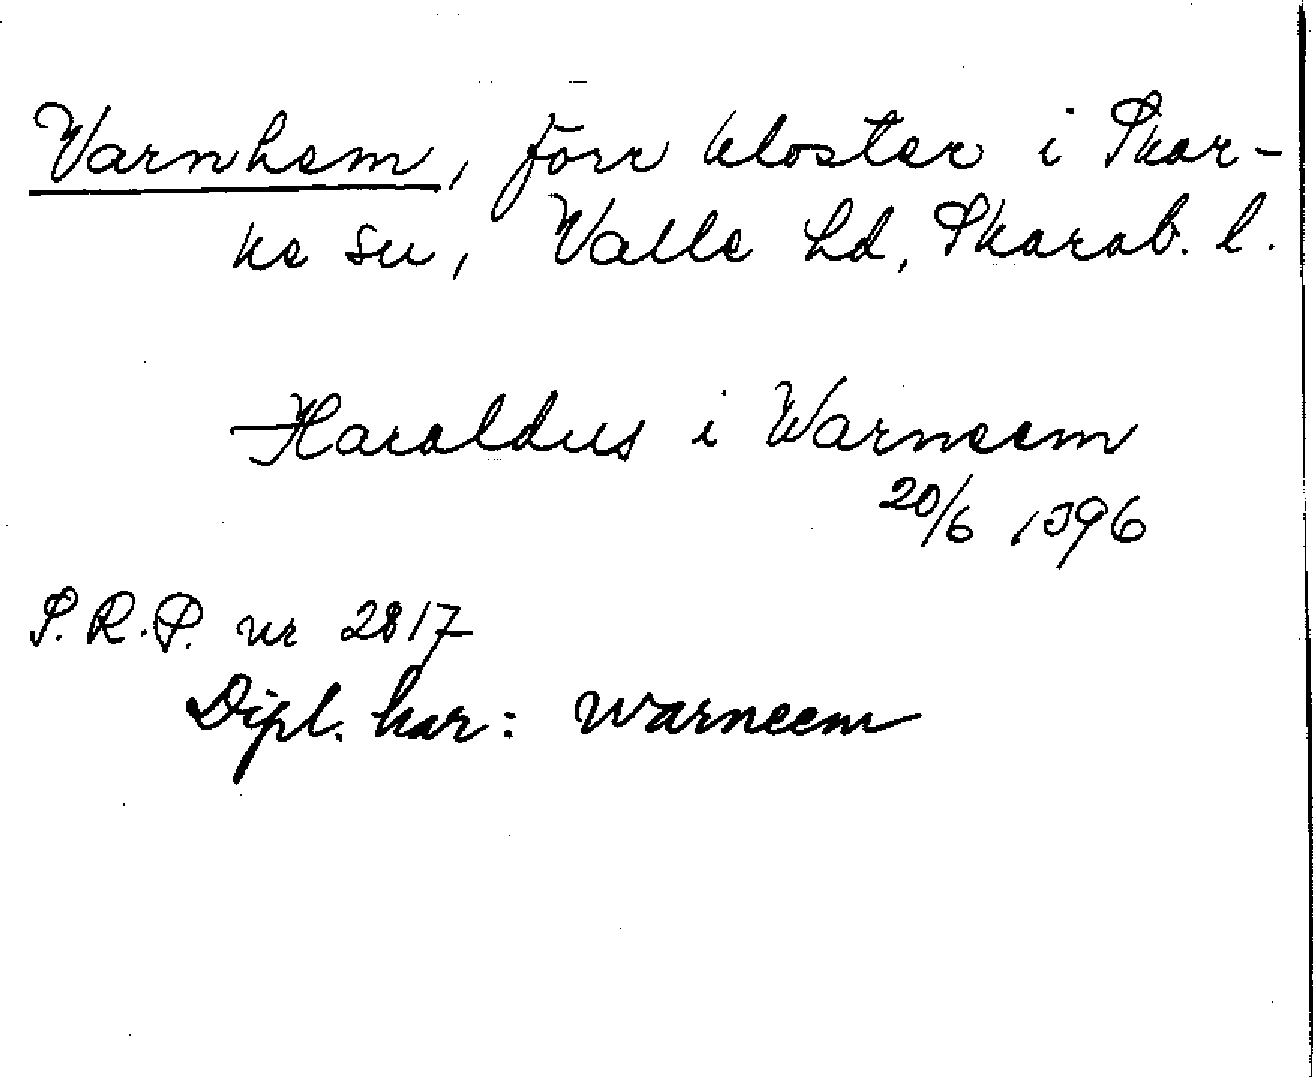 Varnhem, förr kloster i Skar-
ke sn, Valle hd, Skarab. l.
Haraldus i Warneem
20/6 1396
S.R.P. nr 2817
Dipl. har: warneem